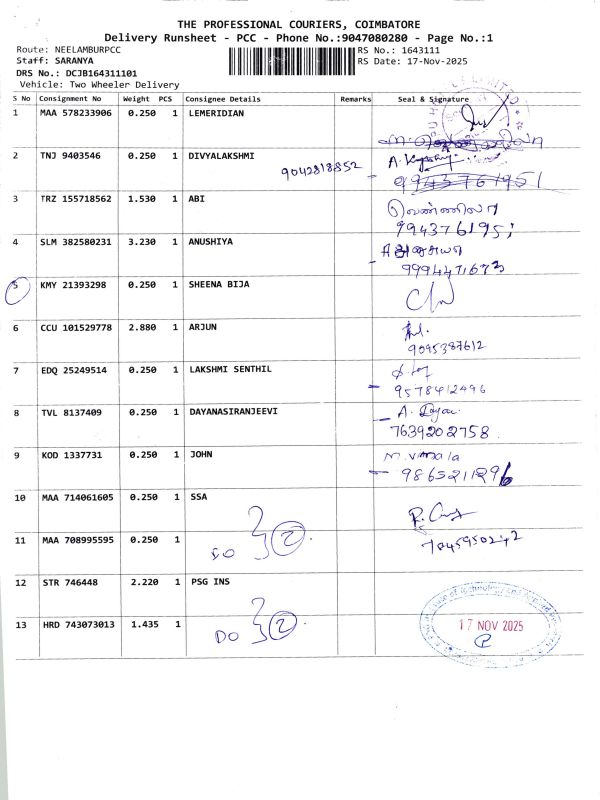 THE PROFESSIONAL COURIERS, COIMBATORE
Delivery Runsheet - PCC - Phone No.:9047080280 - Page No.:1
Route: NEELAMBURPCC RS No.: 1643111
Staff: SARANYA RS Date: 17-Nov-2025
DRS No.: DCJB164311101
Vehicle: Two Wheeler Delivery
S No Consignment No Weight PCS Consignee Details Remarks Seal & Signature
1 MAA 578233906 0.250 1 LEMERIDIAN
2 TNJ 9403546 0.250 1 DIVYALAKSHMI
9042818852
9943761951
3 TRZ 155718562 1.530 1 ABI வெண்ணிலா
9943761951
4 SLM 382580231 3.230 1 ANUSHIYA
9994471673
5 KMY 21393298 0.250 1 SHEENA BIJA
6 CCU 101529778 2.880 1 ARJUN
9095387612
7 EDQ 25249514 0.250 1 LAKSHMI SENTHIL
9578412496
8 TVL 8137409 0.250 1 DAYANASIRANJEEVI
7639202758
9 KOD 1337731 0.250 1 JOHN M. Vimala
9865211296
10 MAA 714061605 0.250 1 SSA
11 MAA 708995595 0.250 1
DO 2
7045950242
12 STR 746448 2.220 1 PSG INS
13 HRD 743073013 1.435 1
DO 2
17 NOV 2025